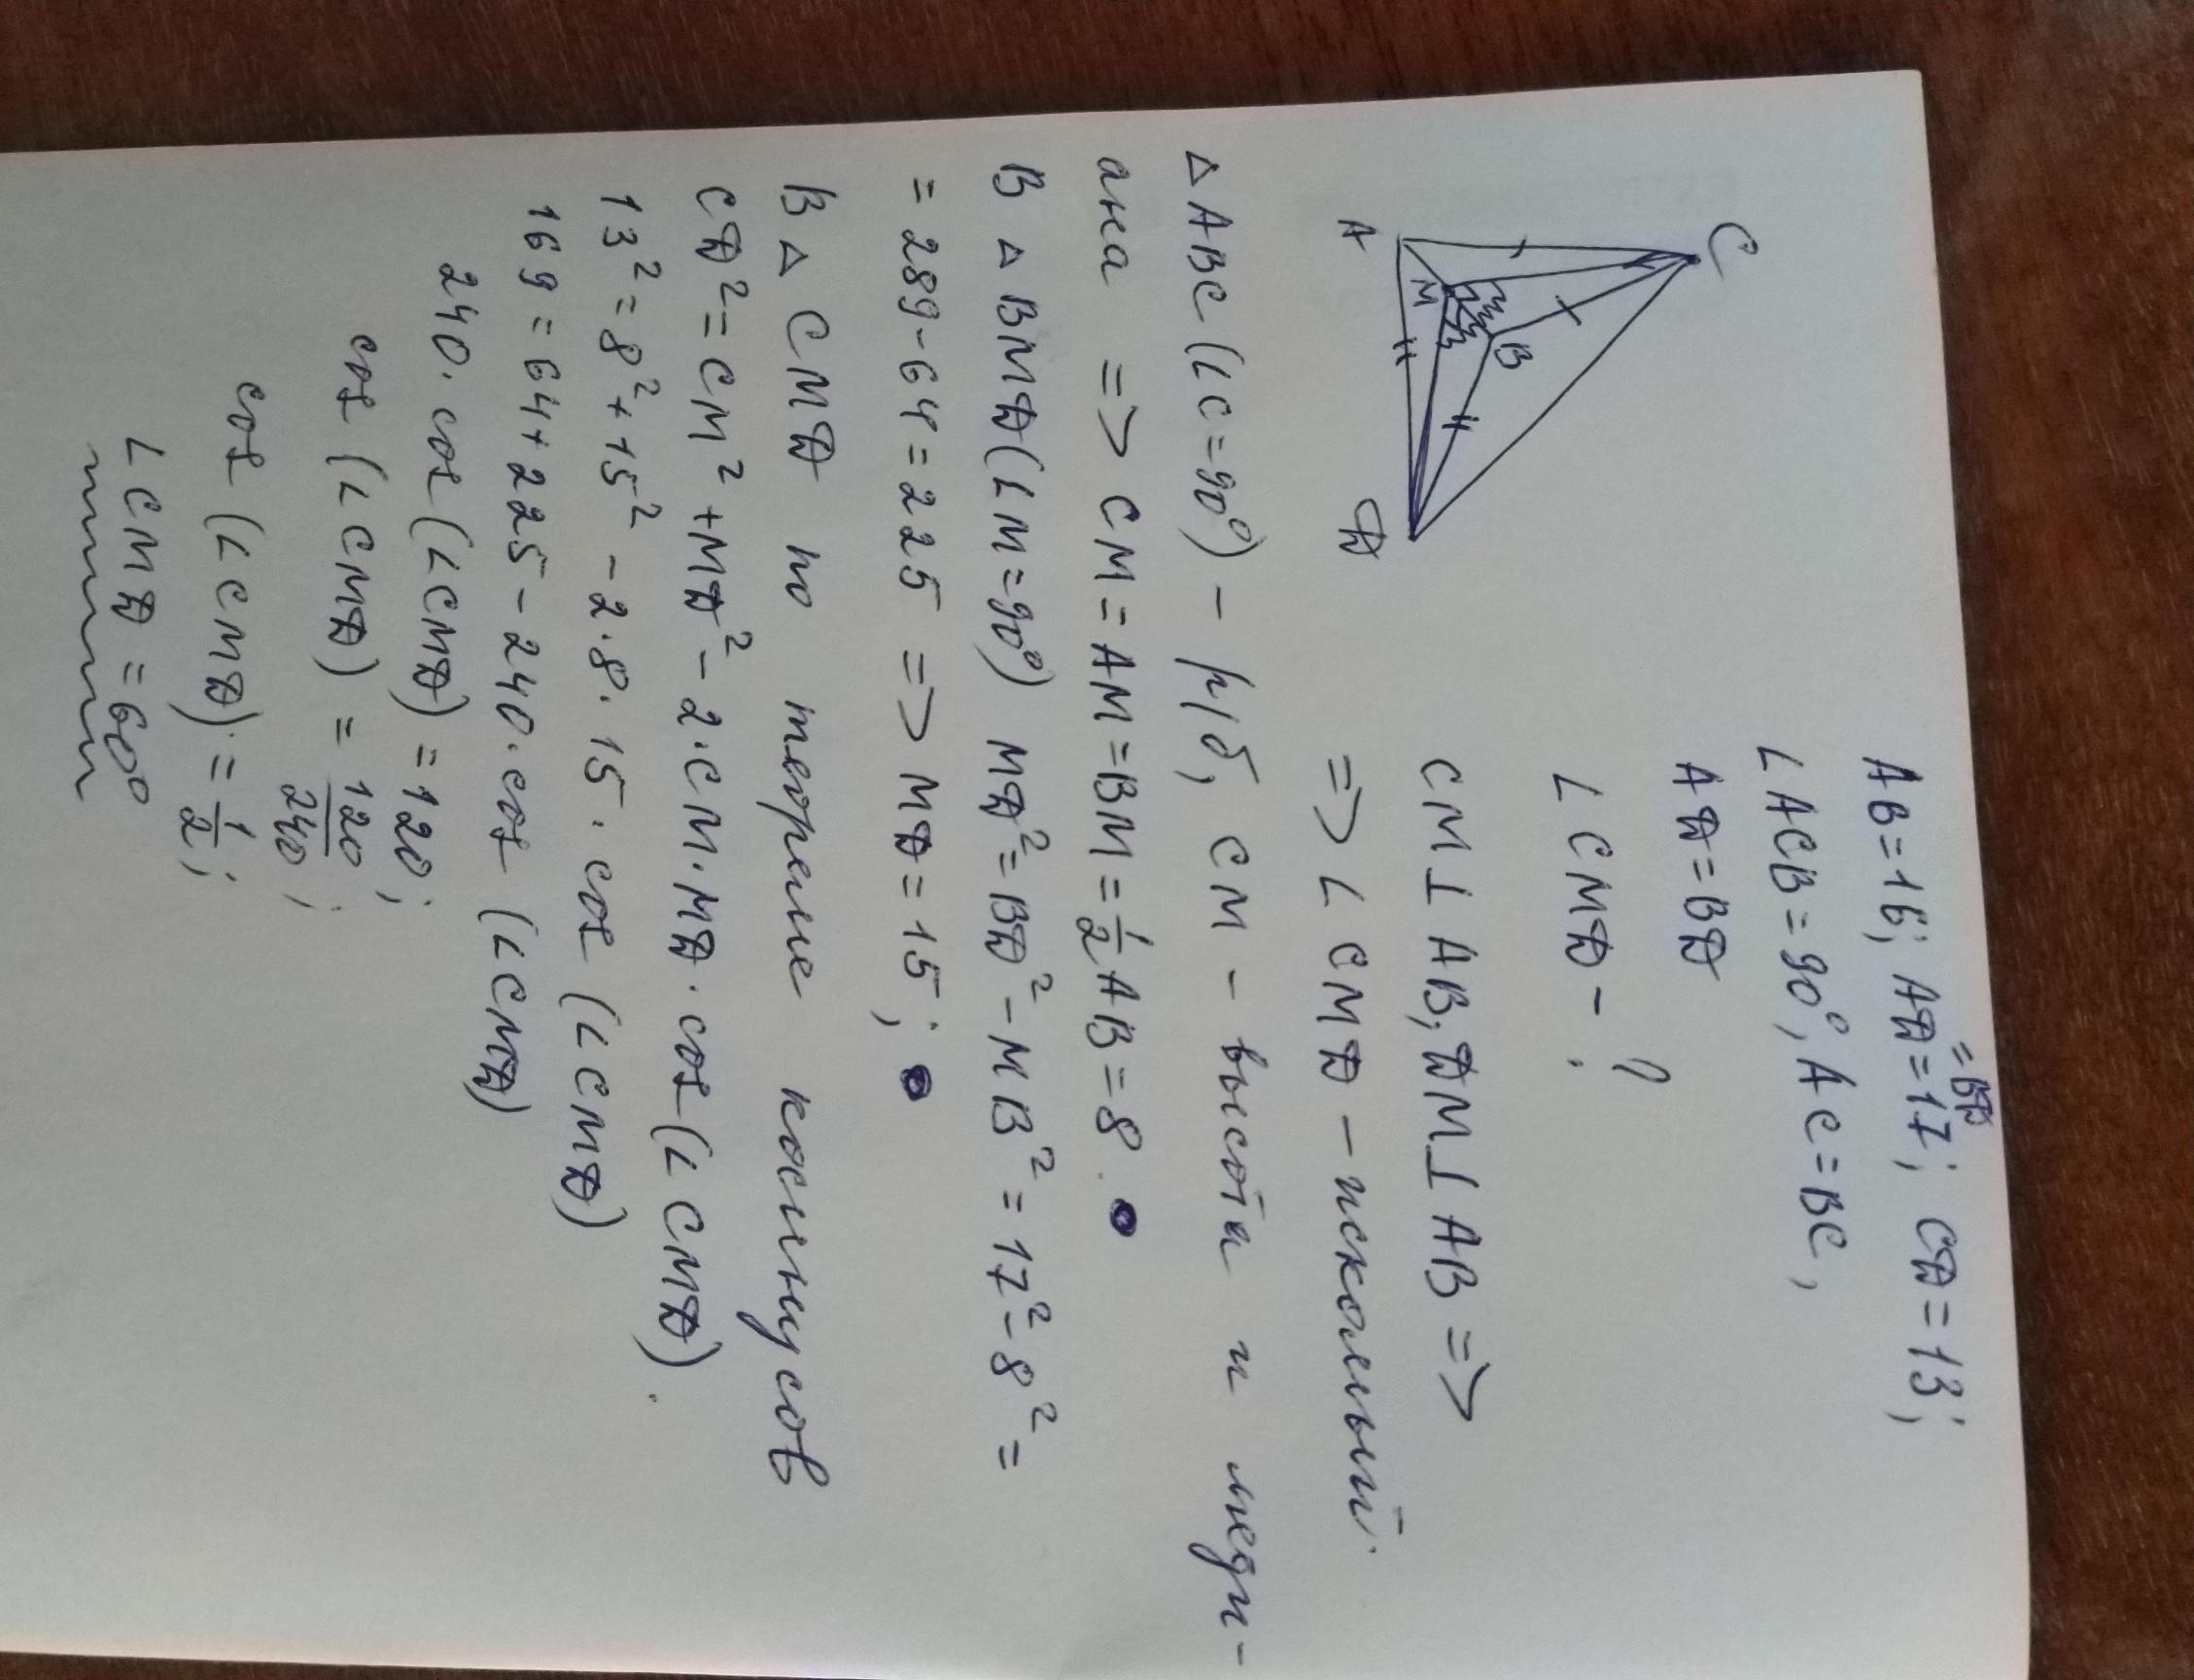 AB=16; AD=17; CD=13;
=BD
∠ACB=90°, AC=BC,
AD=BD
∠CMD-?
C
A
M
B
D
CM⊥AB, DM⊥AB =>
=> ∠CMD - искомый.
△ABC (∠C=90°) - р/б, CM - высота и меди-
ана => CM=AM=BM=1/2 AB=8.
В △BMD (∠M=90°) MD²=BD²-MB²=17²-8²=
=289-64=225 => MD=15;
В △CMD по теореме косинусов
CD²=CM²+MD²-2·CM·MD·cos(∠CMD).
13²=8²+15²-2·8·15·cos(∠CMD)
169=64+225-240·cos(∠CMD)
240·cos(∠CMD)=120;
cos(∠CMD)=120/240;
cos(∠CMD)=1/2;
∠CMD=60°